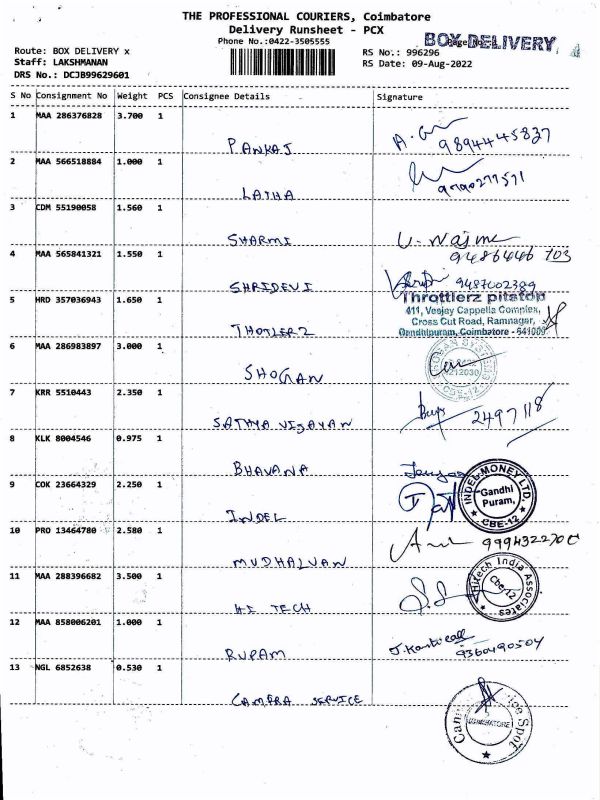 THE PROFESSIONAL COURIERS, Coimbatore
Delivery Runsheet - PCX
Phone No.:0422-3505555
BOX DELIVERY
Route: BOX DELIVERY x
RS No.: 996296
Staff: LAKSHMANAN
RS Date: 09-Aug-2022
DRS No.: DCJB99629601
S No Consignment No Weight PCS Consignee Details Signature
1 MAA 286376828 3.700 1
PANKAJ 9894445837
2 MAA 566518884 1.000 1
LATHA 9790277571
3 CDM 55190058 1.560 1
SHARMI
9486446 703
4 MAA 565841321 1.550 1
SHRIDEVI 9487002389
5 HRD 357036943 1.650 1
Throttlerz pitstop
411, Veejay Cappella Complex,
Cross Cut Road, Ramnagar,
Gandhipuram, Coimbatore - 641009
THOTLERZ
6 MAA 286983897 3.000 1
SHOGAN
CBE-12
7 KRR 5510443 2.350 1
SATHYA VIJAYAN 2497118
8 KLK 8004546 0.975 1
BHAVANA
9 COK 23664329 2.250 1
INDEL
INDEL MONEY LTD.
Gandhi
Puram,
CBE-12
10 PRO 13464780 2.580 1
MUDHALVAN
11 MAA 288396682 3.500 1
HI TECH
Hitech India Associates
Cbe-12
12 MAA 858006201 1.000 1
RUPAM 9360490504
13 NGL 6852638 0.530 1
CAMERA SERVICE
COIMBATORE
Spot